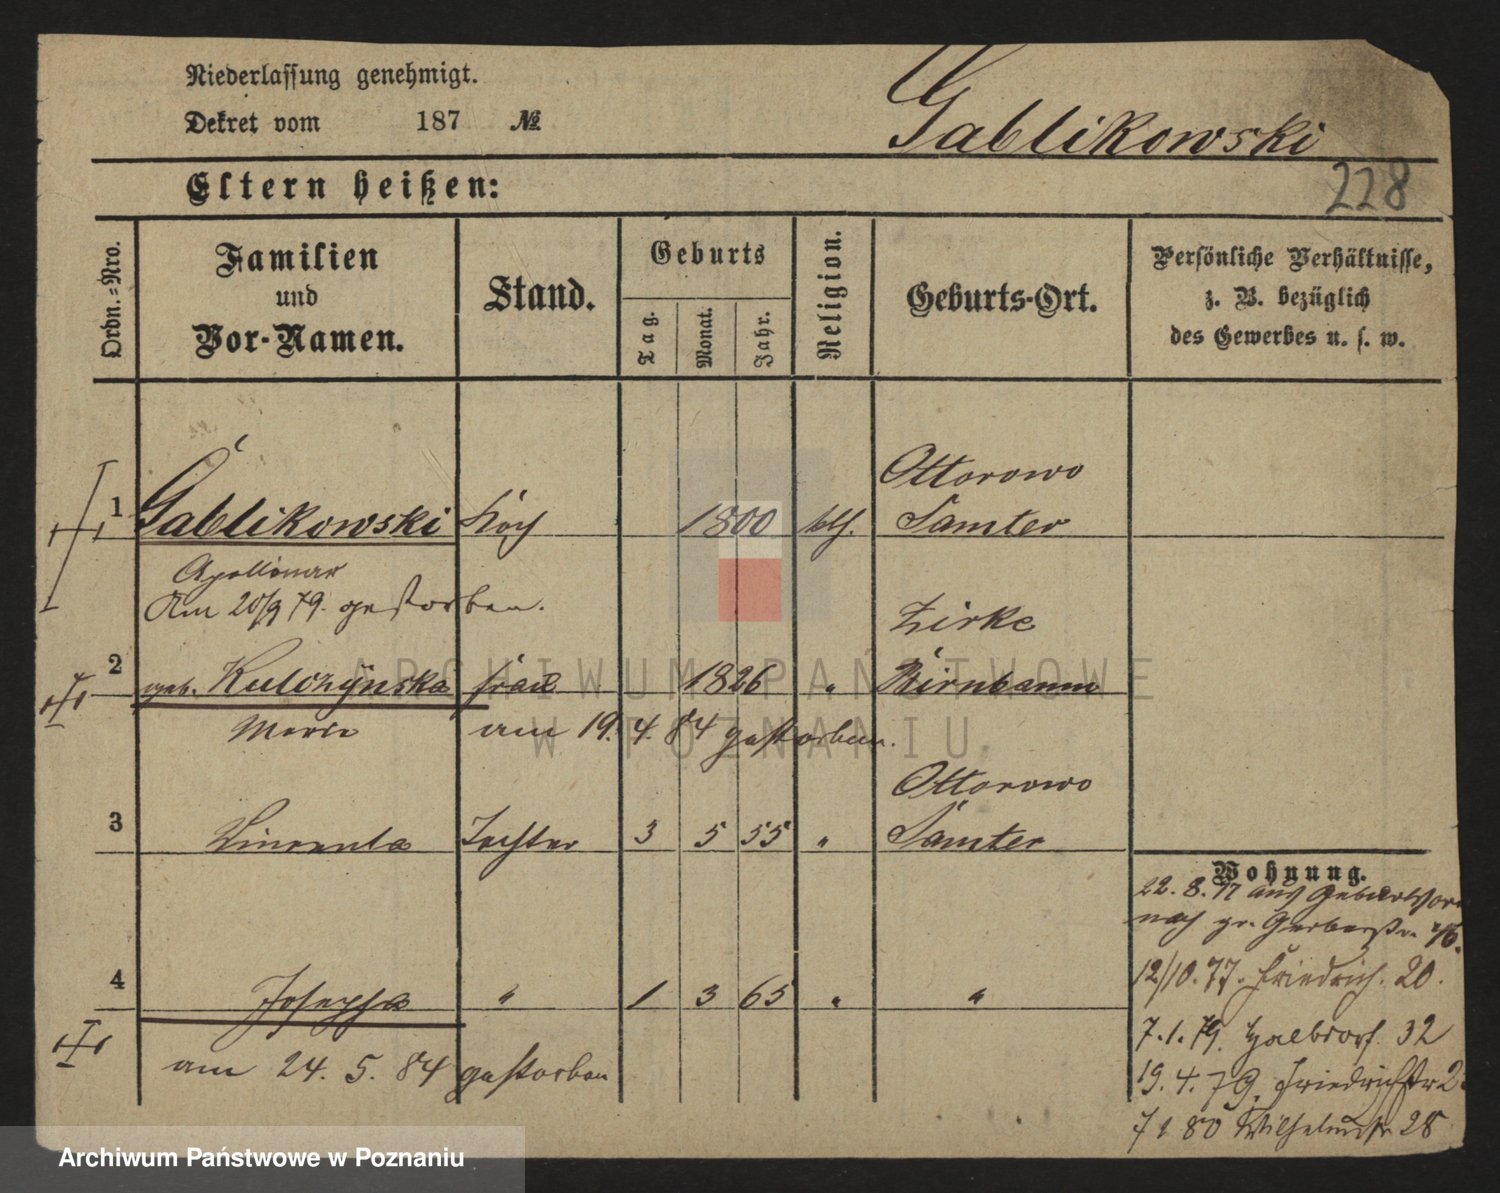 Niederlassung genehmigt.
Dekret vom 187 №
Gablikowski
228
Eltern heißen:
Ordn.=Nro.
Familien
und
Vor-Namen.
Stand.
Geburts
Tag.
Monat.
Jahr.
Religion.
Geburts-Ort.
Persönliche Verhältnisse,
z. B. bezüglich
des Gewerbes u. s. w.
Ottorowo
1 Gablikowski Koch 1800 kth. Samter
Apollinar
Am 20/9 79. gestorben.
Zirke
2 geb. Kulczÿnska Frau 1826 " Birnbaum
am 19. 4. 84 gestorben.
Ottorowo
3 Vincenta Tochter 3 5 55 " Samter
4 Josepha " 1 3 65 " "
am 24. 5. 84 gestorben
Wohnung.
22. 8. 77 aus
nach gr. Gerberstr.
12/10. 77. Friedrich. 20.
7. 1. 79. Halbdorf. 32
19. 4. 79. Friedrichstr 2
7 1 80 Wilhelmstr 28
ARCHIWUM PAŃSTWOWE
W POZNANIU
Archiwum Państwowe w Poznaniu